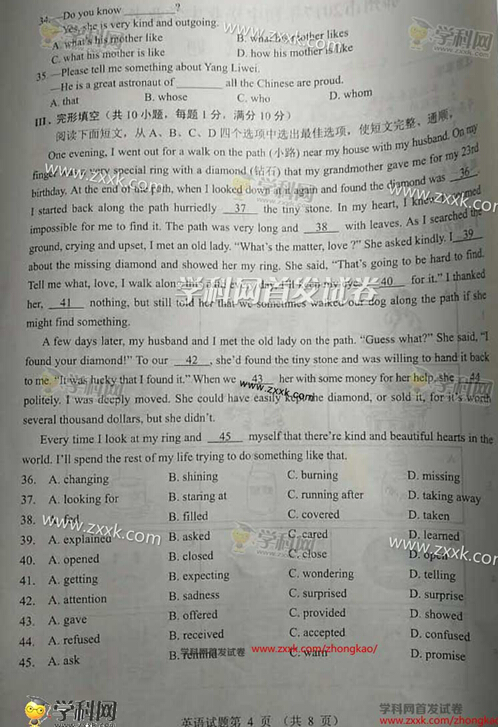 34. —Do you know ________?
—Yes, she is very kind and outgoing.
A. what's his mother like B. what his mother likes
C. what his mother is like D. how his mother is like
35. —Please tell me something about Yang Liwei.
—He is a great astronaut of ________ all the Chinese are proud.
A. that B. whose C. who D. whom
III. 完形填空（共 10 小题，每题 1 分，满分 10 分）
阅读下面短文，从 A、B、C、D 四个选项中选出最佳选项，使短文完整、通顺。
One evening, I went out for a walk on the path (小路) near my house with my husband. On my
finger was a very special ring with a diamond (钻石) that my grandmother gave me for my 23rd
birthday. At the end of the path, when I looked down at it again and found the diamond was 36 .
I started back along the path hurriedly 37 the tiny stone. In my heart, I knew it seemed
impossible for me to find it. The path was very long and 38 with leaves. As I searched the
ground, crying and upset, I met an old lady. "What's the matter, love ?" She asked kindly. I 39
about the missing diamond and showed her my ring. She said, "That's going to be hard to find.
Tell me what, love, I walk along this path every day. I'll keep my eyes 40 for it." I thanked
her, 41 nothing, but still told her that we sometimes walked our dog along the path if she
might find something.
A few days later, my husband and I met the old lady on the path. "Guess what?" She said, "I
found your diamond!" To our 42 , she'd found the tiny stone and was willing to hand it back
to me. "It was lucky that I found it." When we 43 her with some money for her help, she 44
politely. I was deeply moved. She could have easily kept the diamond, or sold it, for it's worth
several thousand dollars, but she didn't.
Every time I look at my ring and 45 myself that there're kind and beautiful hearts in the
world. I'll spend the rest of my life trying to do something like that.
36. A. changing B. shining C. burning D. missing
37. A. looking for B. staring at C. running after D. taking away
38. B. filled C. covered D. taken
39. A. explained B. asked C. cared D. learned
40. A. opened B. closed C. close D. open
41. A. getting B. expecting C. wondering D. telling
42. A. attention B. sadness C. surprised D. surprise
43. A. gave B. offered C. provided D. showed
44. A. refused B. received C. accepted D. confused
45. A. ask B. remind C. warn D. promise
英语试题第 4 页 （共 8 页）
学科网
www.zxxk.com
学科网首发试卷
www.zxxk.com/zhongkao/